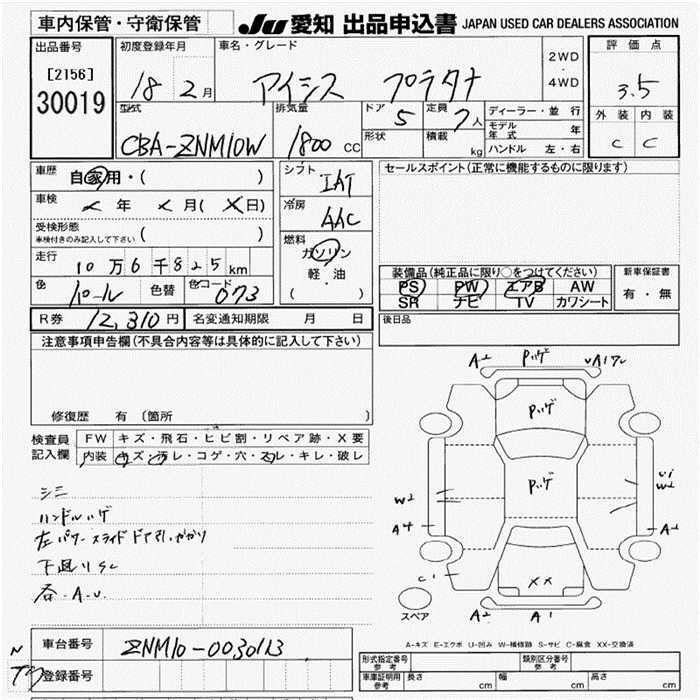 車内保管・守衛保管
JU 愛知 出品申込書 JAPAN USED CAR DEALERS ASSOCIATION
出品番号
[2156]
30019
初度登録年月
18 2月
車名・グレード
アイシス プラタナ
2WD
・
4WD
評価点
3.5
外装 内装
C C
型式
CBA-ZNM10W
排気量
1800 CC
ドア 5
形状
定員 7人
積載 kg
ディーラー・並行
モデル年式 年
ハンドル 左・右
車歴 自家用・( )
車検 年 月( 日)
受検形態
車検付きのみ記入して下さい ( )
走行 10万6千825km
色 パール 色替 色コード 073
シフト IAT
冷房 AAC
燃料
ガソリン
軽・油
( )
セールスポイント(正常に機能するものに限ります)
装備品(純正品に限り○をつけてください)
PS PW エアB AW
SR ナビ TV カワシート
新車保証書
有・無
R券 12,310円 名変通知期限 月 日
後日品
注意事項申告欄(不具合内容等は具体的に記入して下さい)
修復歴 有 〔箇所 〕
検査員
記入欄
FW キズ・飛石・ヒビ割・リペア跡・X要
内装 キズ・汚レ・コゲ・穴・スレ・キレ・破レ
シミ
ハンドルハゲ
下廻りSC
A2 Pハゲ A17レ
Pハゲ
Pハゲ
W2
A4
C1
W2
A2
XX
A2 A1
スペア
A-キズ E-エクボ U-凹み W-補修跡 S-サビ C-腐食 XX-交換済
車台番号 ZNM10-0030113
登録番号
形式指定番号
参考
類別区分番号
参考
車庫証明用
参考
長さ cm 幅 cm 高さ cm